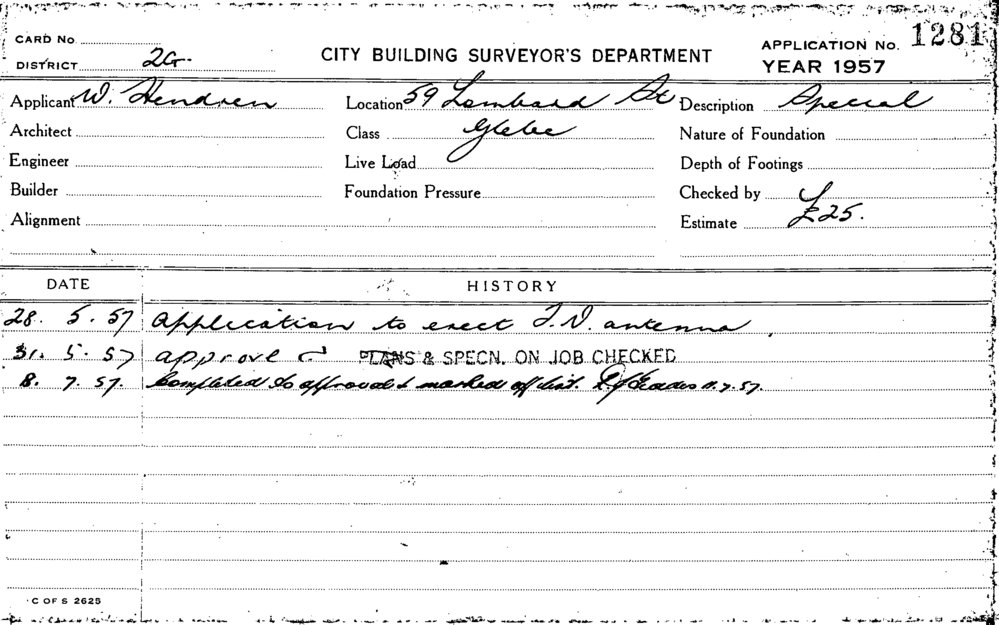 CARD No.
DISTRICT 2G.
CITY BUILDING SURVEYOR'S DEPARTMENT
APPLICATION No. 1281
YEAR 1957
Applicant W. Hendren
Location 59 Lombard St
Description Special
Architect
Class Glebe
Nature of Foundation
Engineer
Live Load
Depth of Footings
Builder
Foundation Pressure
Checked by
Alignment
Estimate £25.
DATE HISTORY
28. 5. 57 Application to erect T.V. antenna.
31. 5. 57 approve PLANS & SPECN. ON JOB CHECKED
8. 7. 57. Completed to approval & marked off list. 11.7.57.
C OF S 2625